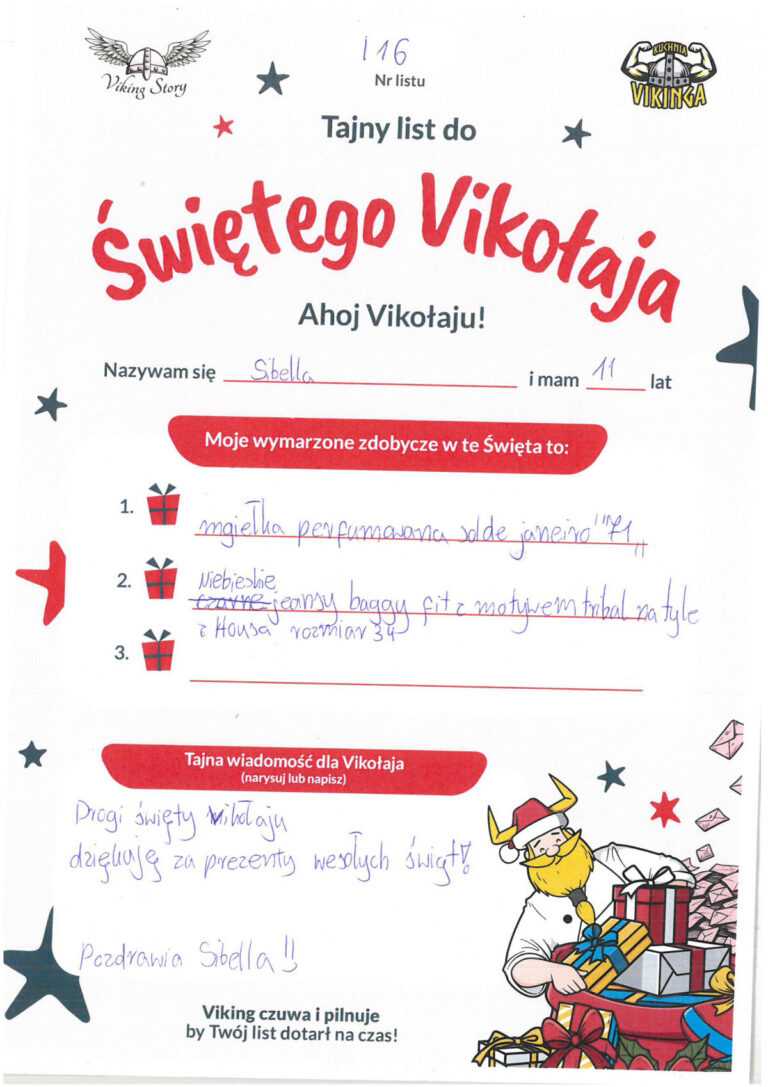 Viking Story
116
Nr listu
KUCHNIA
VIKINGA
Tajny list do
Świętego Vikołaja
Ahoj Vikołaju!
Nazywam się Sibella i mam 11 lat
Moje wymarzone zdobycze w te Święta to:
1. mgiełka perfumowana sol de janeiro "71„
Niebieskie
2. czarne jeansy baggy fit z motywem tribal na tyle
z Housa rozmiar 34
3.
Tajna wiadomość dla Vikołaja
(narysuj lub napisz)
Drogi święty Vikołaju
dziękuję za prezenty wesołych świąt!
Pozdrawia Sibella!!
Viking czuwa i pilnuje
by Twój list dotarł na czas!